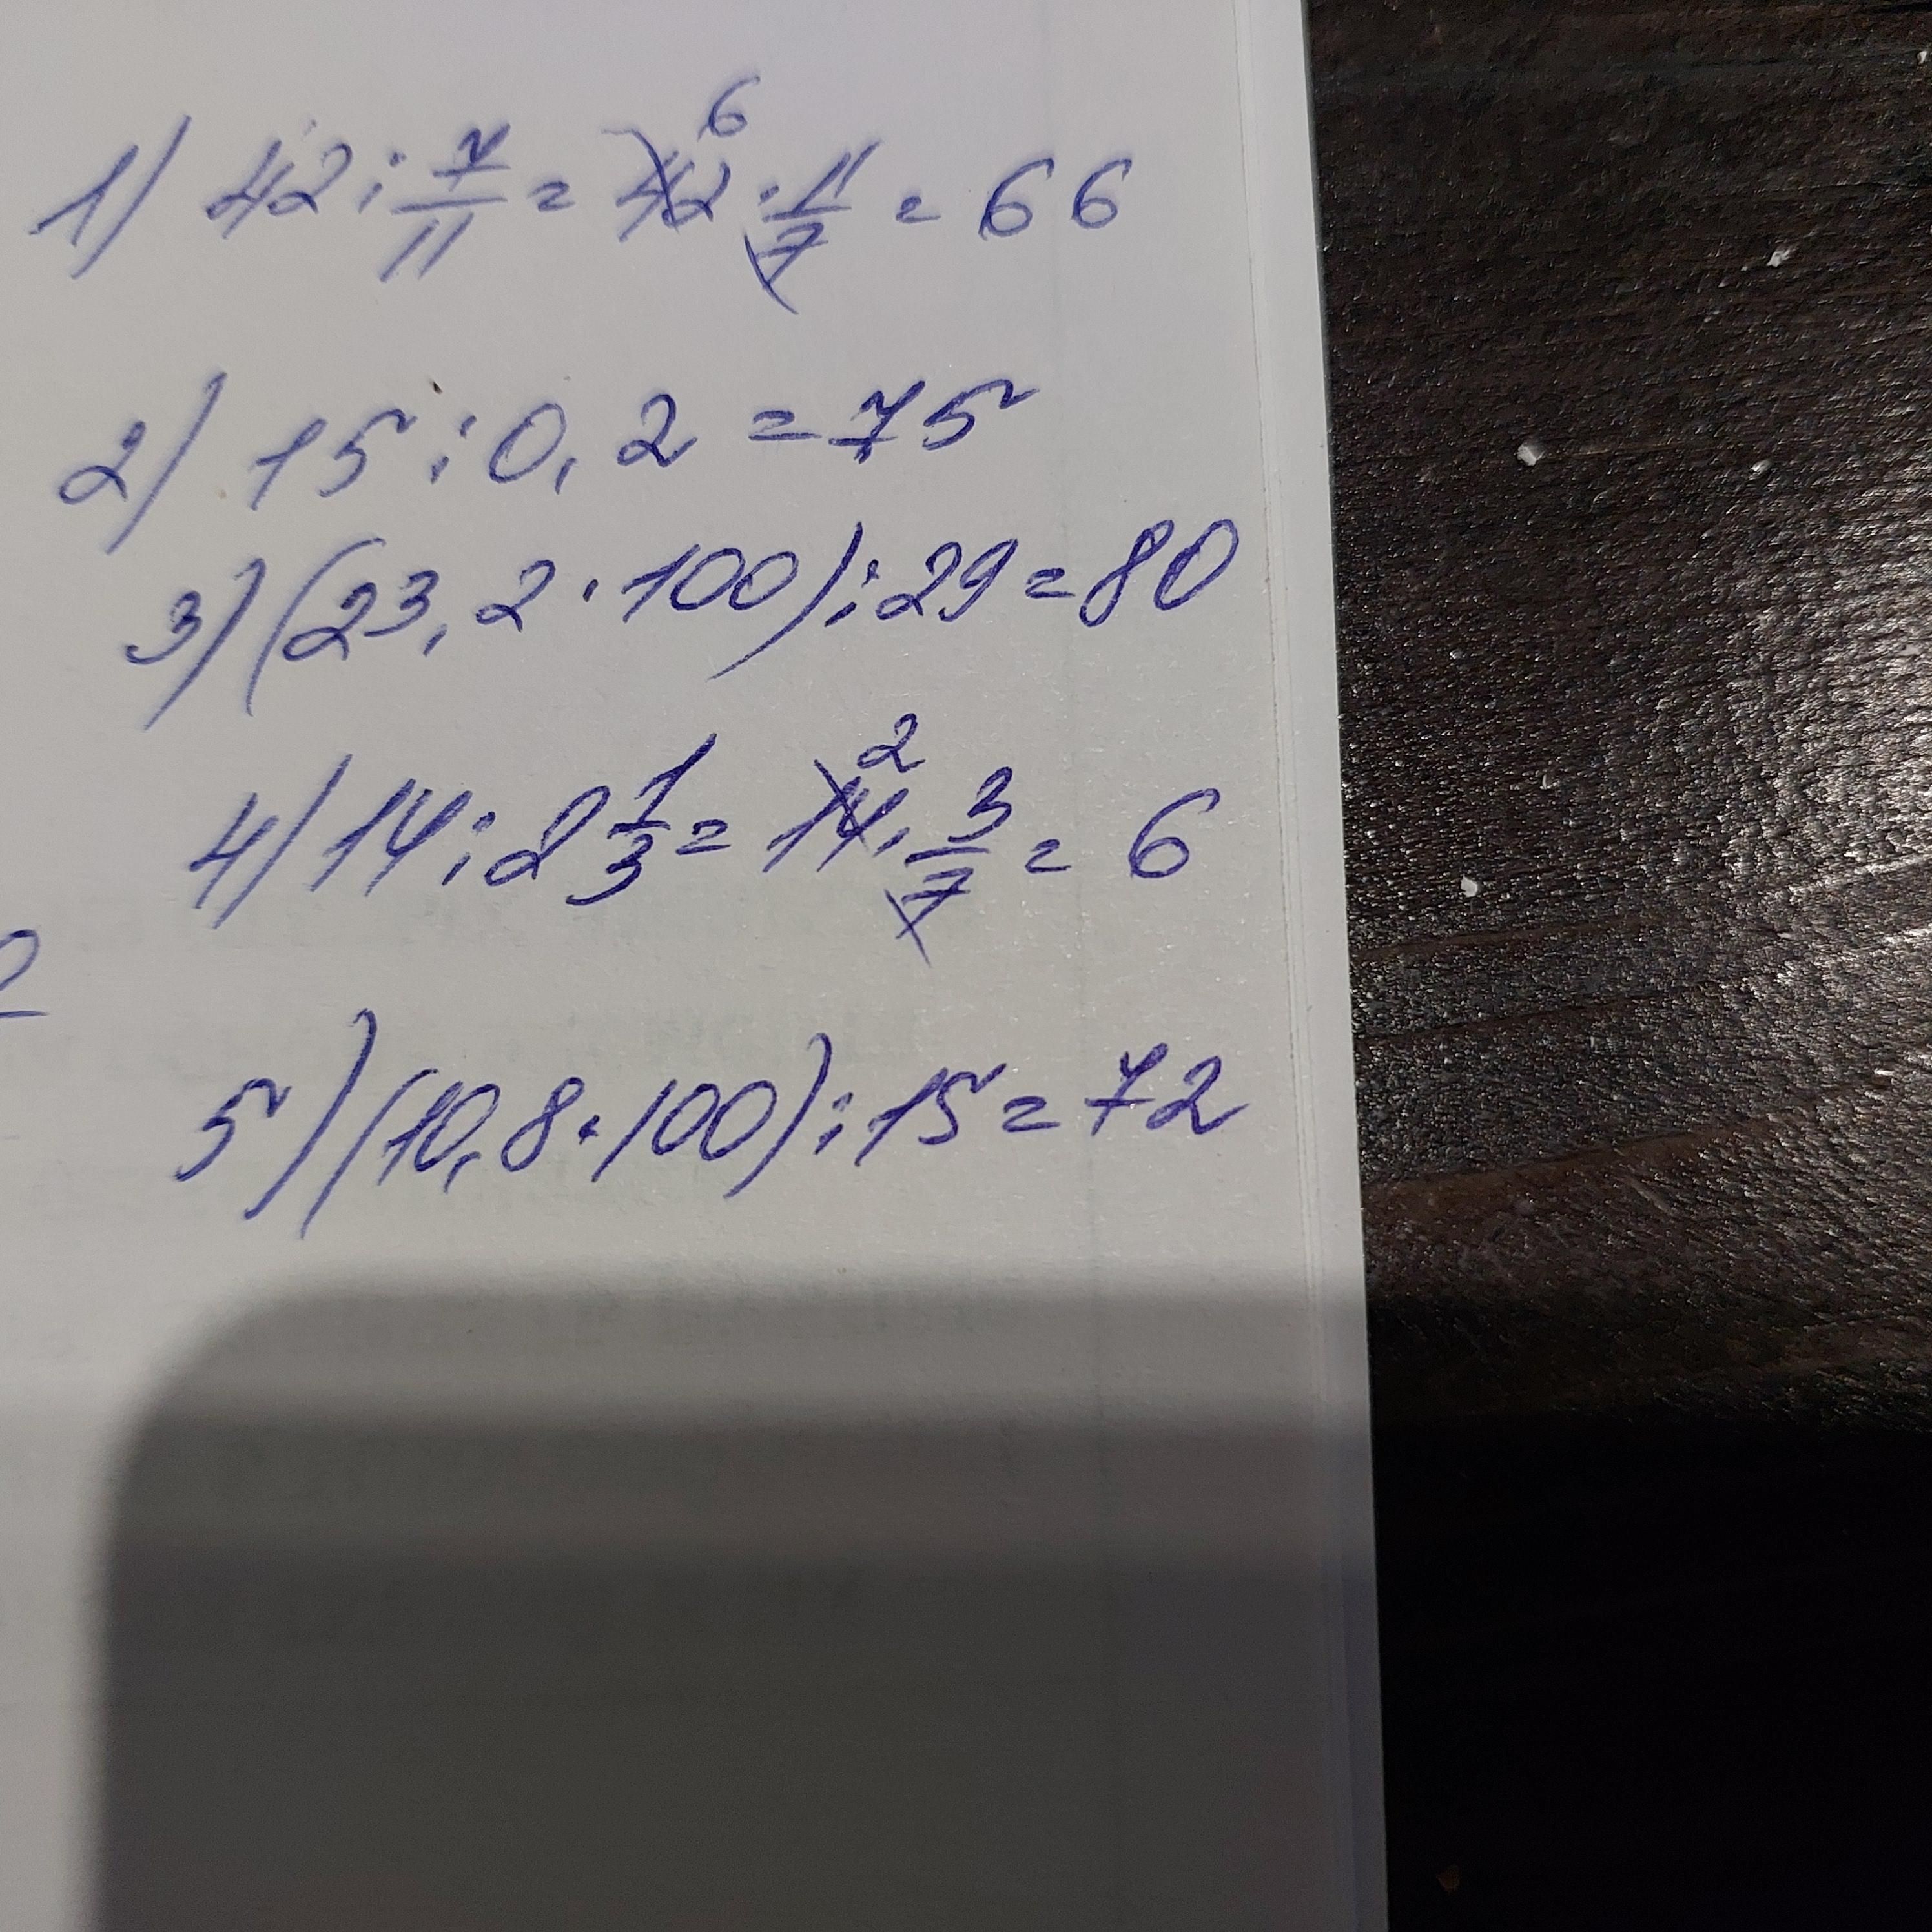 1) 42 : 7/11 = 42 6 · 11/7 = 66
2) 15 : 0,2 = 75
3) (23,2 · 100) : 29 = 80
4) 14 : 2 1/3 = 14 2 · 3/7 = 6
2
5) (10,8 · 100) : 15 = 72